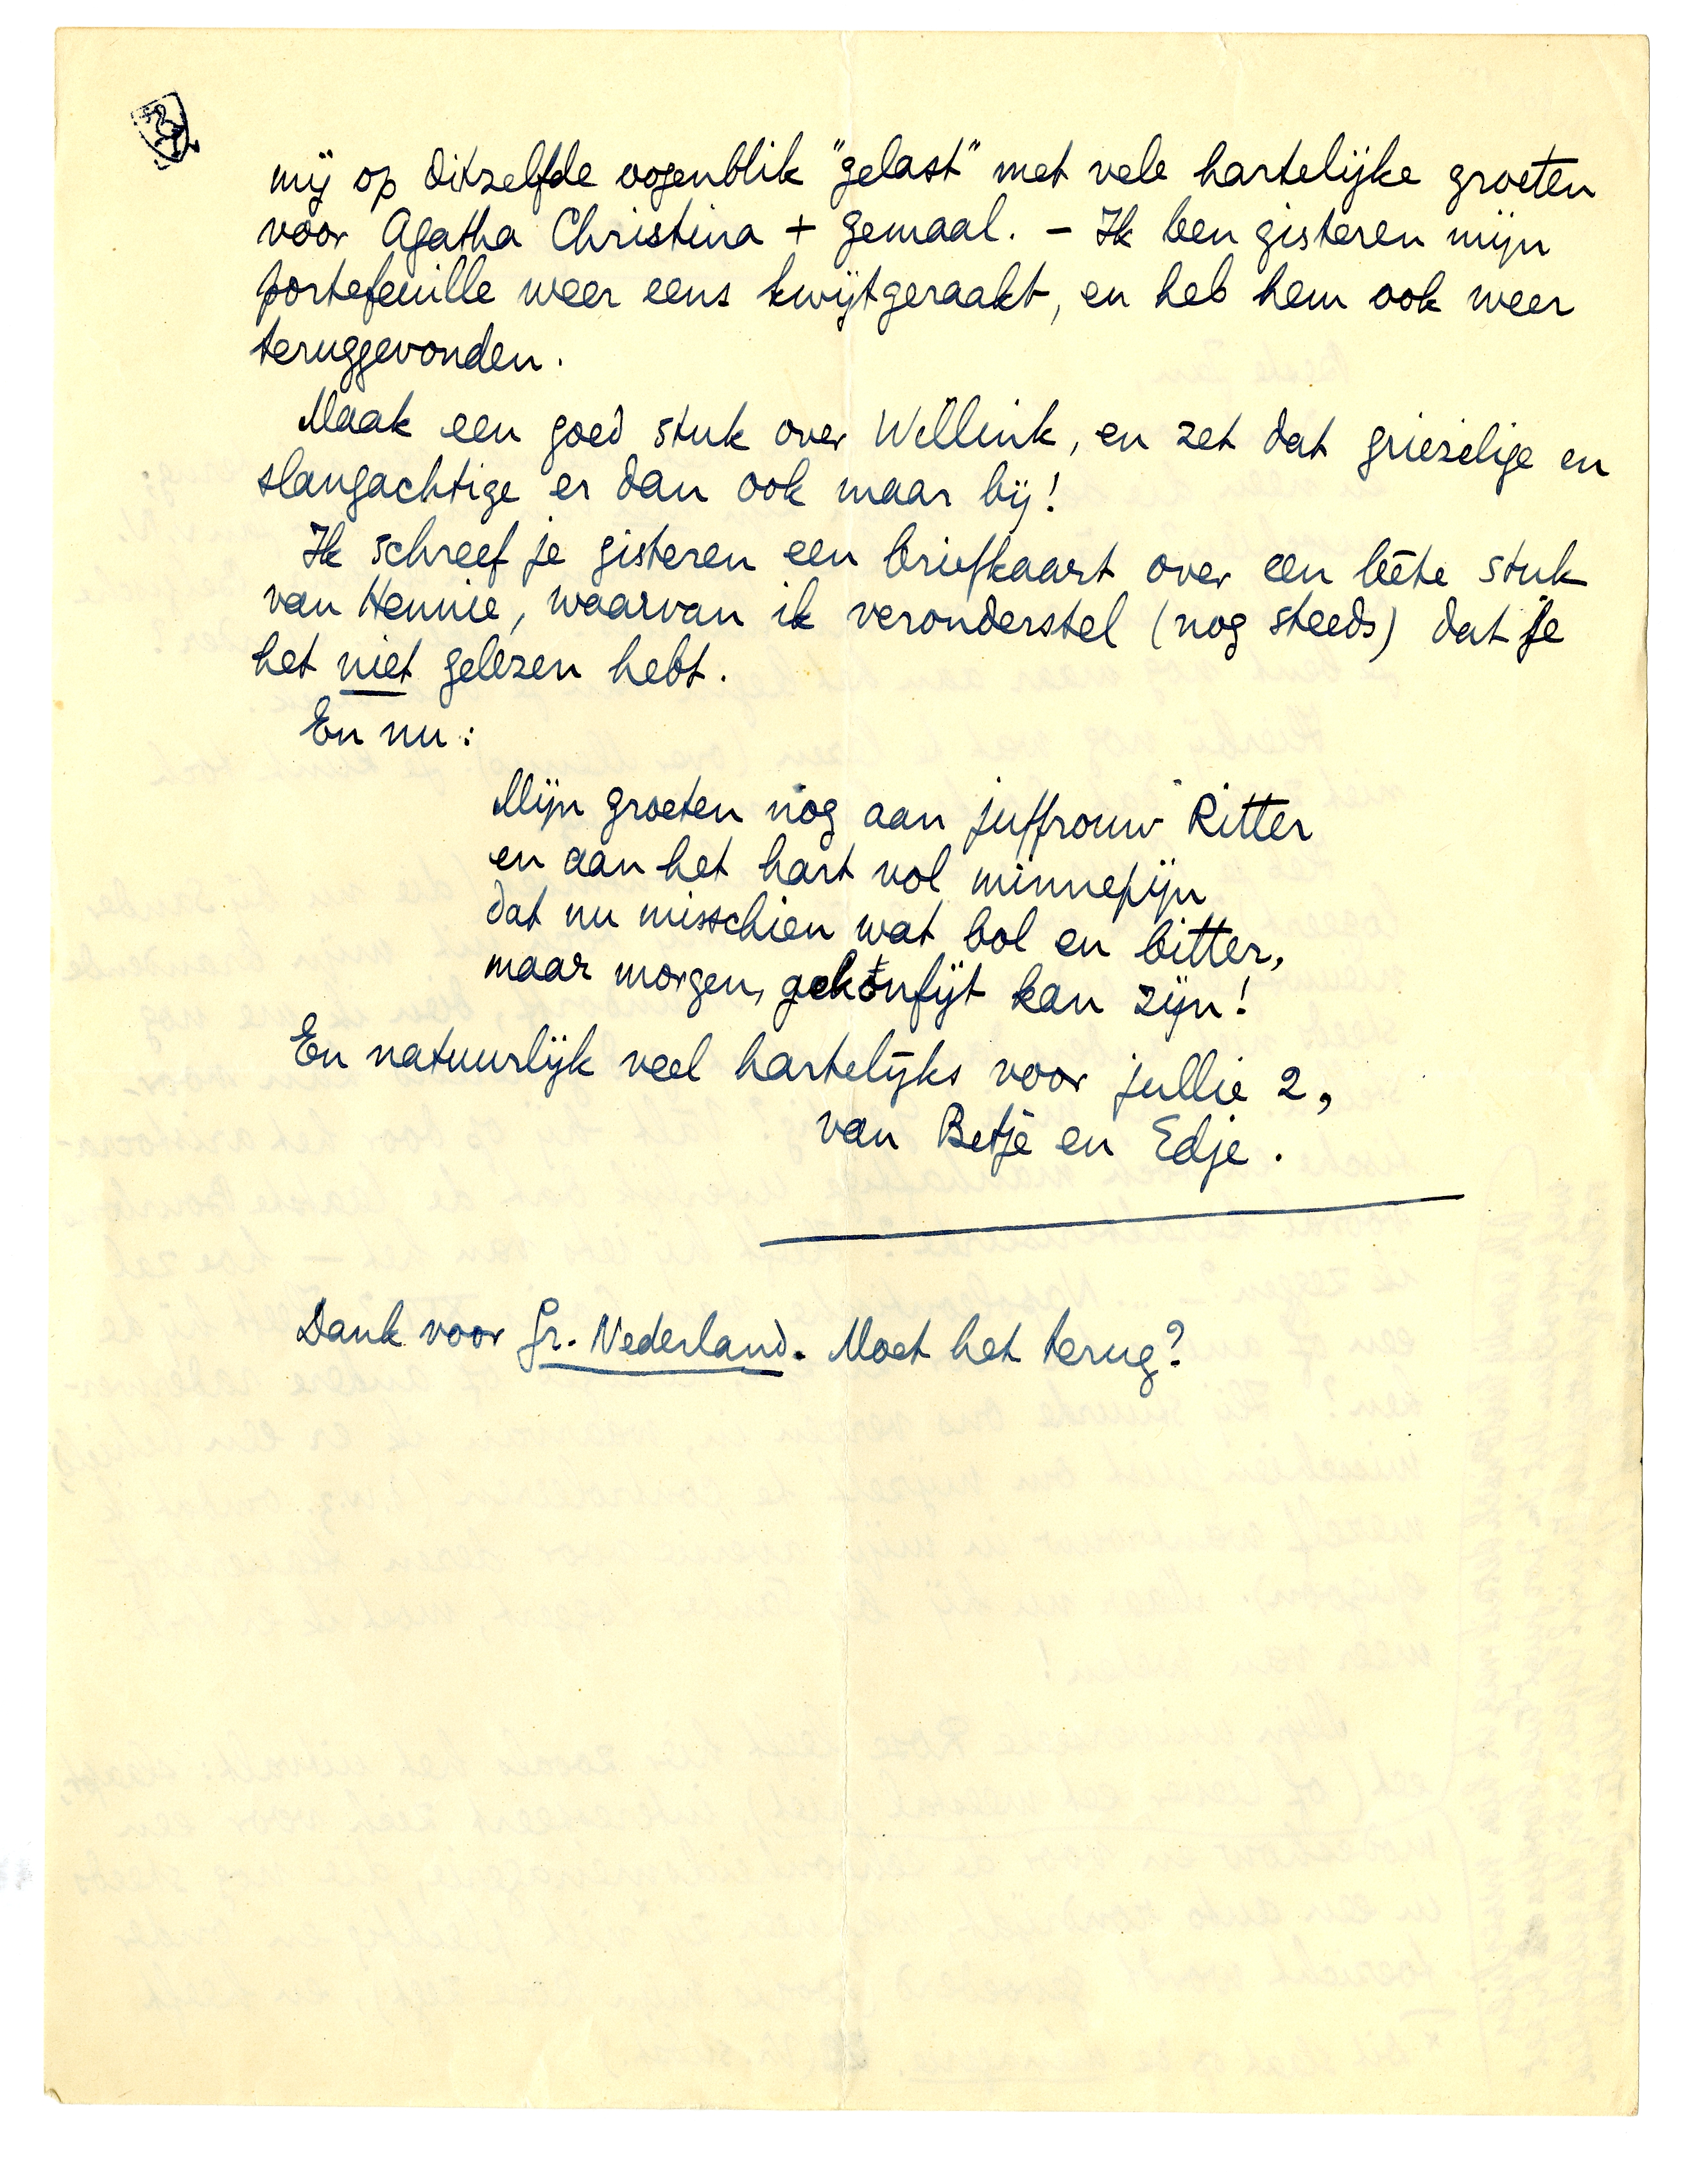 mij op ditzelfde oogenblik "gelast" met vele hartelijke groeten
voor Agatha Christina + gemaal. – Ik ben gisteren mijn
portefeuille weer eens kwijtgeraakt, en heb hem ook weer
teruggevonden.
Maak een goed stuk over Willink, en zet dat griezelige en
slangachtige er dan ook maar bij!
Ik schreef je gisteren een briefkaart over een bête stuk
van Hennie, waarvan ik veronderstel (nog steeds) dat je
het niet gelezen hebt.
En nu:
Mijn groeten nog aan juffrouw Ritter
en aan het hart vol minnepijn
dat nu misschien wat bol en bitter,
maar morgen, gekonfijt kan zijn!
En natuurlijk veel hartelijks voor jullie 2,
van Betje en Edje.
Dank voor Gr. Nederland. Moet het terug?